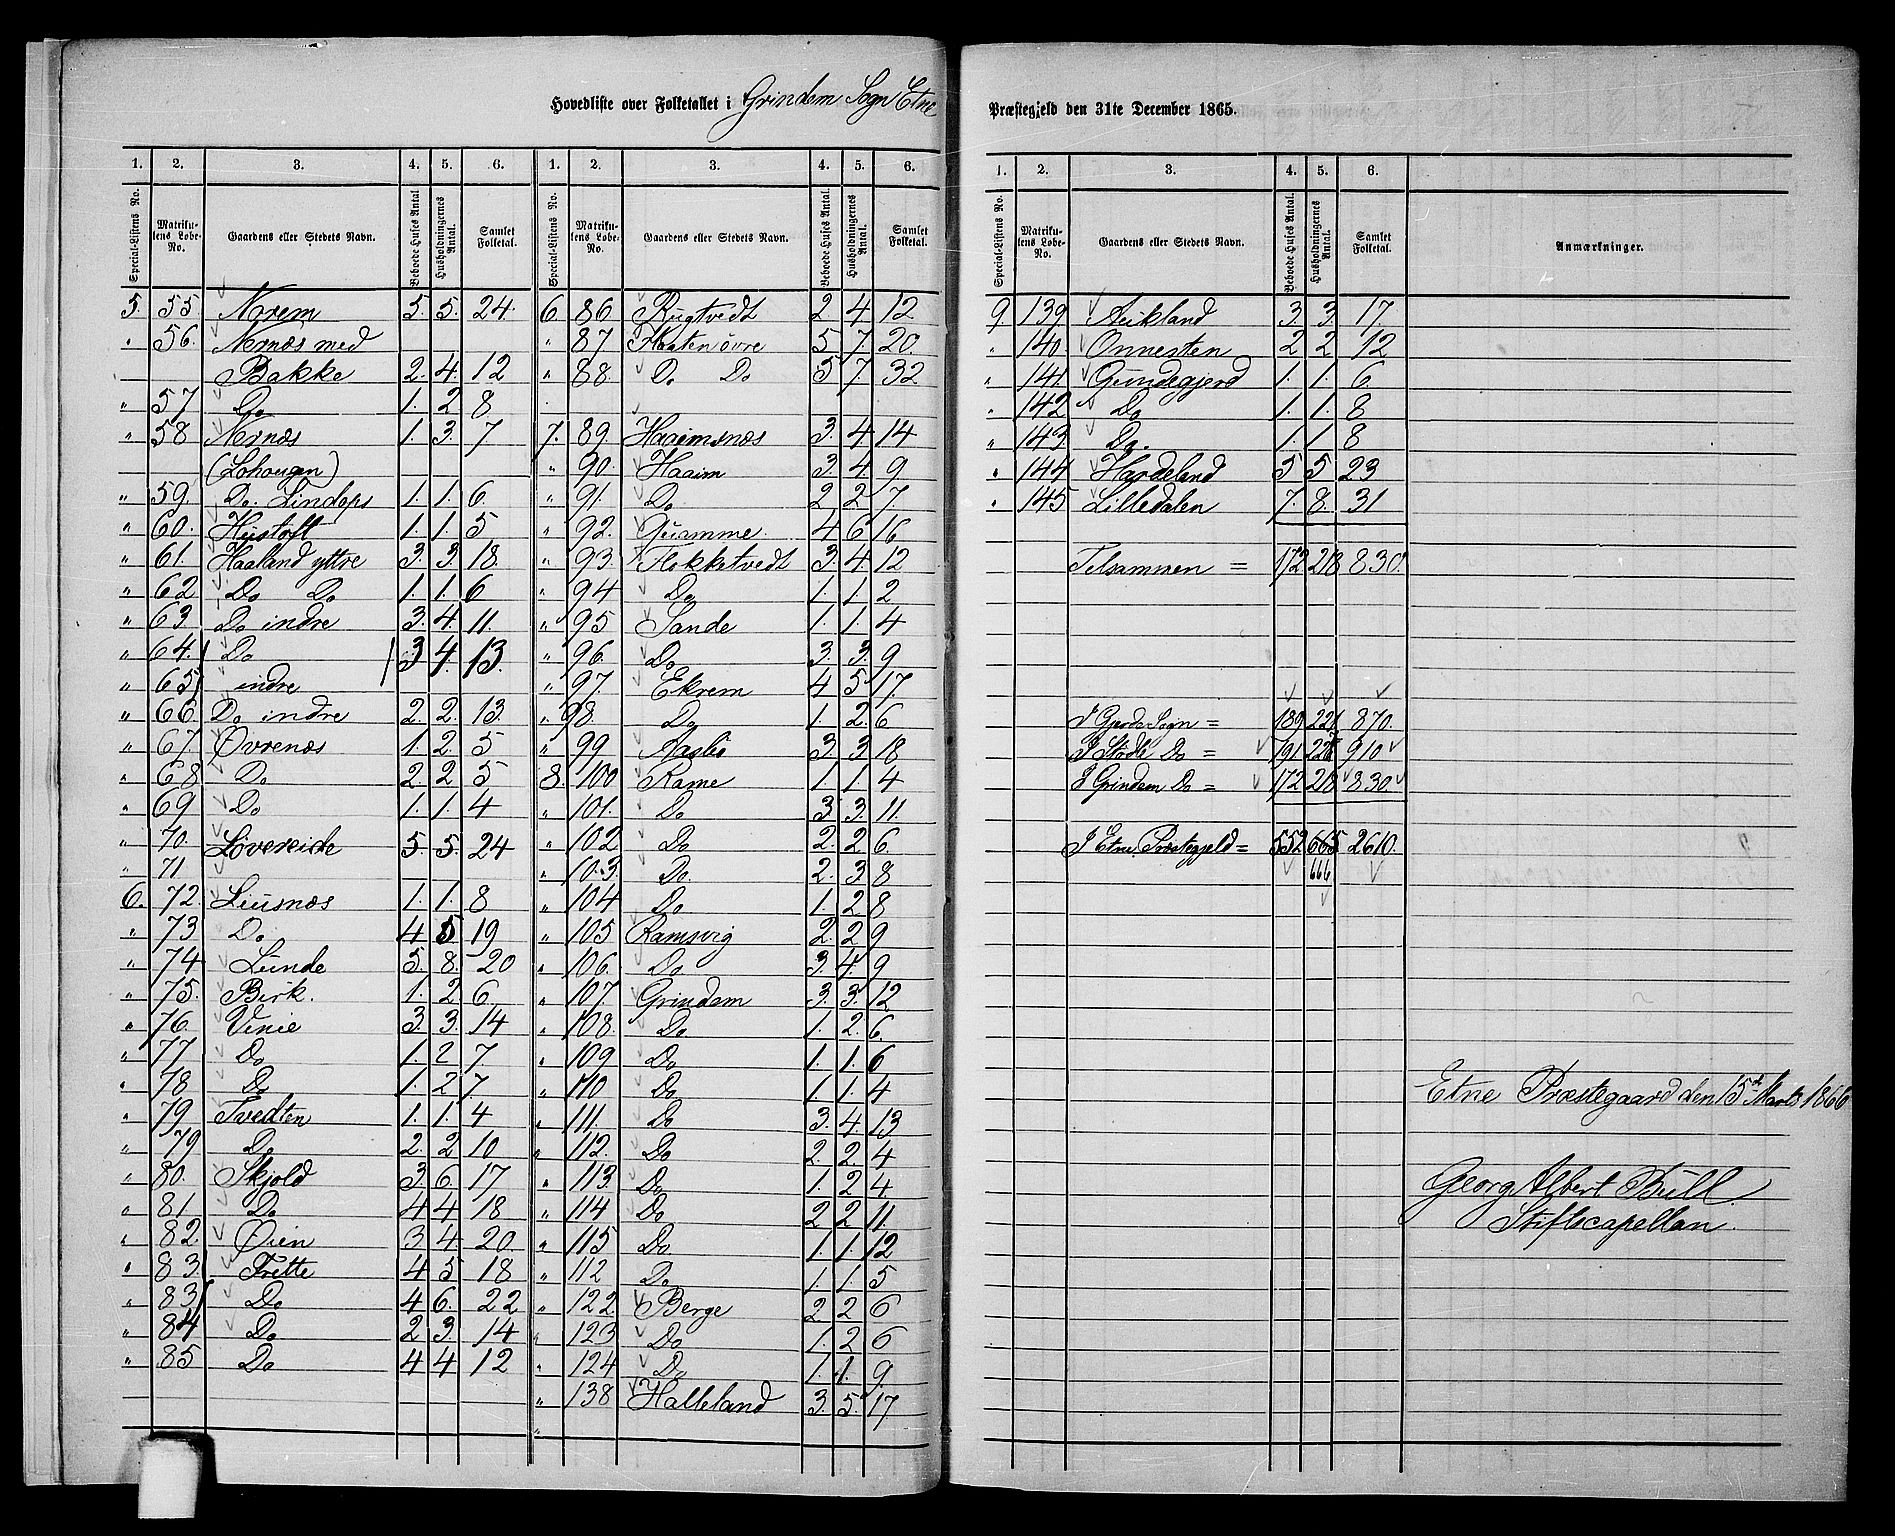 Hovedliste over Folketallet i Grindem Sogn Etne
Præstegjeld den 31te December 1865.
1. 2. 3. 4. 5. 6. 1. 2. 3. 4. 5. 6.
Special-Listens No. Matrikulens Løbe-No. Gaardens eller Stedets Navn. Beboede Huses Antal. Husholdningernes Antal. Samlet Folketal. Special-Listens No. Matrikulens Løbe-No. Gaardens eller Stedets Navn. Beboede Huses Antal. Husholdningernes Antal. Samlet Folketal.
5. 55 Norem 5. 5. 24.
" 56. Nernæs med
Bakke 2. 4. 12
" 57 Do 1. 2 8
" 58 Nernæs 1. 3. 7
(Lohougen)
" 59. Do. Lindaas 1. 1. 6.
" 60. Hustoft 1. 1. 5
" 61. Haaland yttre 3. 3. 18.
" 62 Do Do 1. 1. 6
" 63. Do indre 3. 4. 11.
" 64. Do 3 4. 13.
" 65 indre
" 66. Do indre 2. 2. 13.
" 67. Øvrenæs 1. 2. 5
" 68 Do 2. 2. 5
" 69 Do 1. 1. 4
" 70. Løvereide 5. 5. 24
" 71
6. 72. Liusnæs 1. 1. 8
" 73 Do 4 5 19
" 74 Lunde 5. 8. 20
" 75. Birk. 1. 2 6
" 76. Vinie 3. 3. 14
" 77 Do 1. 2 7.
" 78. Do 1. 2 7
" 79 Tvedten 1. 1. 4
" 79 Do 2. 2 10
" 80. Skjold 3. 6. 17
" 81 Do 4 4 18
" 82. Øien 3 4. 20
" 83. Frette 4 5 18
" 83 Do 4 6. 22
" 84 Do 2 3. 14
" 85 Do 4 4 12
6. 86 Rugtvedt 2 4 12
" 87 Flaaten øvre 5 7 20.
" 88. Do Do 5 7. 32
7. 89. Haaimsnæs 3. 4 14
" 90. Haaim 3. 4. 9.
" 91. Do 2 2 7
" 92. Quamme 4 6 16
" 93. Flokketvedt 3. 4. 12
" 94 Do 1. 1. 2
" 95 Sande 1. 1. 4
" 96. Do 3. 3. 9
" 97. Ekrem 4 5 17.
" 98. Do 1. 2. 6
" 99 Raabø 3 3 18
8. 100 Rame 1. 1 4
" 101. Do 3 3. 11.
" 102 Do 2. 2 6.
" 103. Do. 2. 3 8
" 104 Do 1. 2 8
" 105 Ramsvig 2. 2 9
" 106. Do 3. 4. 9
" 107. Grindem 3. 3. 12
" 108. Do 1. 2. 6.
" 109 Do 1. 1. 6
" 110 Do 1. 1. 4
" 111. Do 3. 4. 13
" 112. Do 2. 2. 4
" 113. Do 1. 2 4
" 114 Do 2 2 11.
" 115 Do 1. 1. 12
" 112 Do 1. 1. 5
" 122 Berge 2 2 6
" 123 Do 1. 2 6
" 124 Do 1. 1. 9.
" 138 Halleland 3. 5. 17
1. 2. 3. 4. 5. 6.
Special-Listens No. Matrikulens Løbe-No. Gaardens eller Stedets Navn. Beboede Huses Antal. Husholdningernes Antal. Samlet Folketal. Anmærkninger.
9. 139 Aeikland 3. 3. 17
" 140. Onnesten 2 2 12
" 141. Gundegjerd 1. 1. 6.
" 142 Do 1. 1. 8
" 143. Do. 1. 1 8
" 144 Hardeland 5 5 23
" 145 Lilledalen 7. 8. 31
Tilsammen = 172 218 830.
I Gjerde Sogn = 189 221 870.
I Stødle Do = 191 226 910
I Grindem Do = 172 218 830
I Etne Præstegjeld = 552 665 2610.
666
Etne Præstegaard den 15de Marts 1866
Georg Albert Bull
Stiftscapellan.